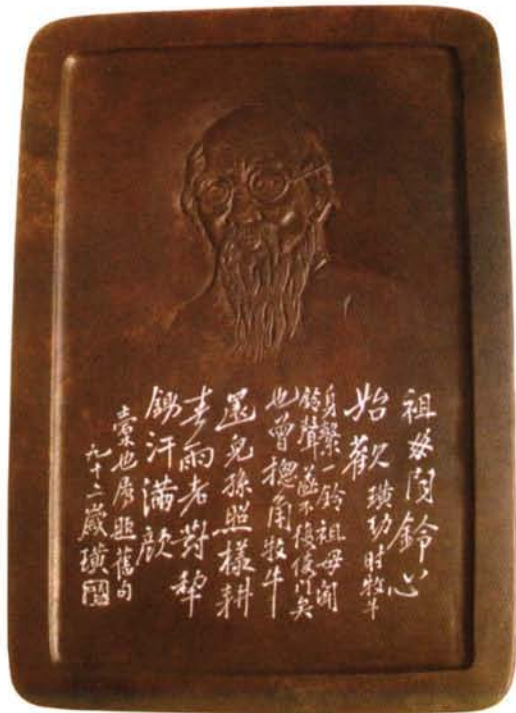 祖母闻鈴心
始歡 璜幼时牧牛
身繫一鈴祖母聞
鈴聲遂不復倚门矣
也曾摠角牧牛
還兒孫照樣耕
春雨老對犁
鋤汗滿顔
也屬題舊句
九十二歲璜